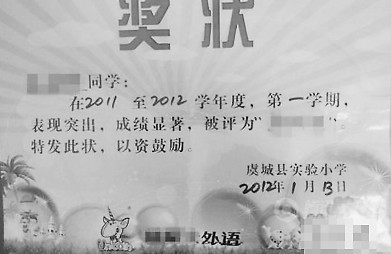 奖状
同学：
在2011至2012学年度，第一学期，
表现突出，成绩显著，被评为“ ”。
特发此状，以资鼓励。
虞城县实验小学
2012年1月13日
外语